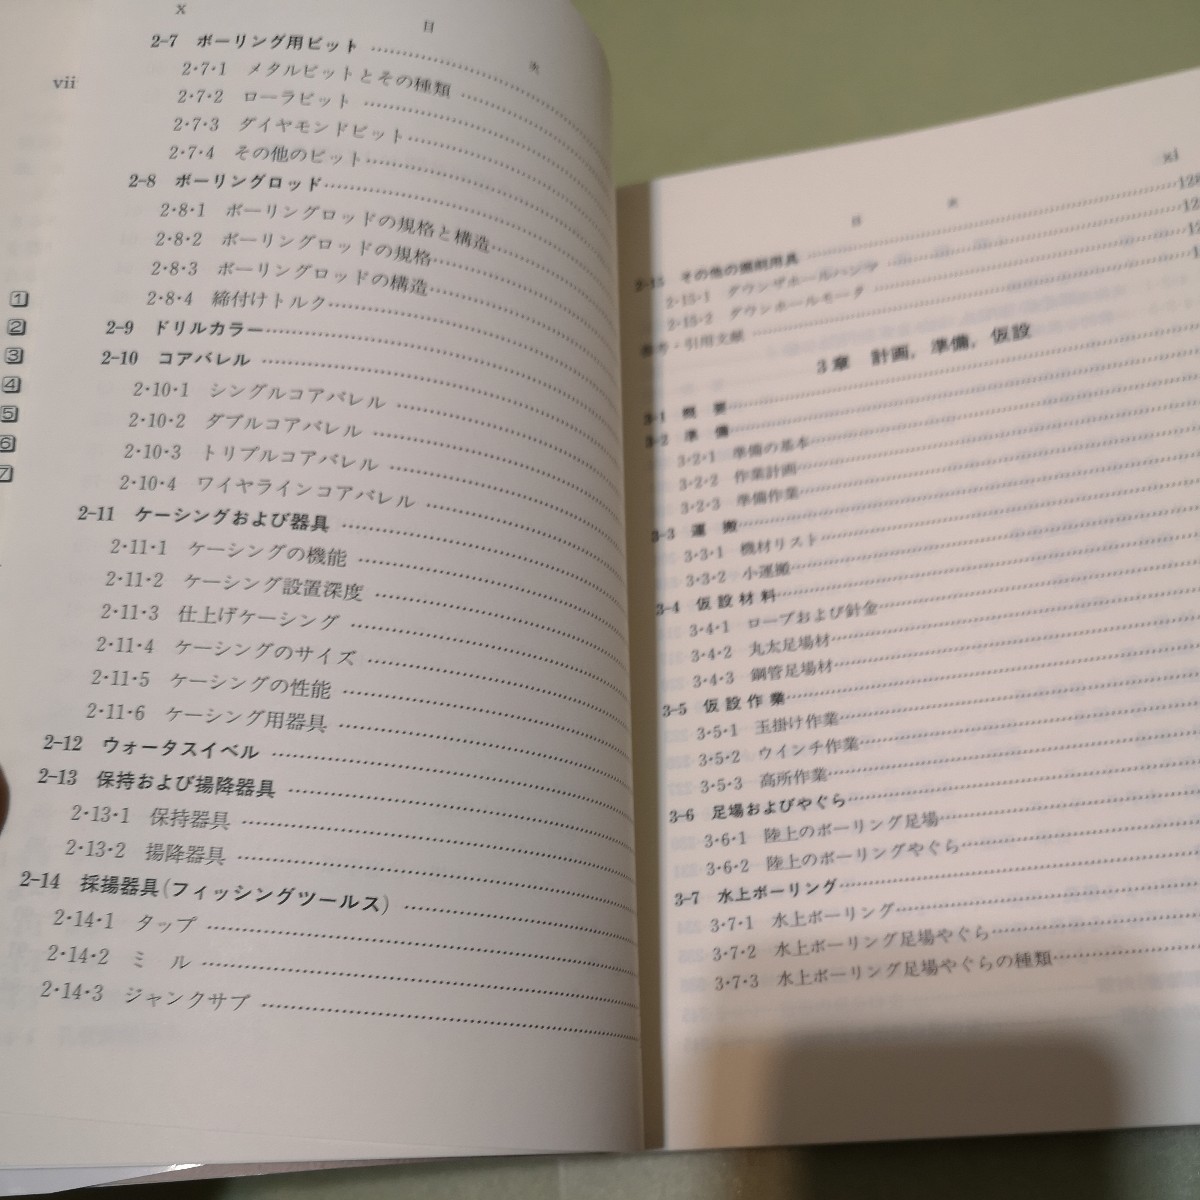 vii
1
2
3
4
5
6
7
x
目　次
2-7　ボーリング用ビット
2・7・1　メタルビットとその種類
2・7・2　ローラビット
2・7・3　ダイヤモンドビット
2・7・4　その他のビット
2-8　ボーリングロッド
2・8・1　ボーリングロッドの規格と構造
2・8・2　ボーリングロッドの規格
2・8・3　ボーリングロッドの構造
2・8・4　締付けトルク
2-9　ドリルカラー
2-10　コアバレル
2・10・1　シングルコアバレル
2・10・2　ダブルコアバレル
2・10・3　トリプルコアバレル
2・10・4　ワイヤラインコアバレル
2-11　ケーシングおよび器具
2・11・1　ケーシングの機能
2・11・2　ケーシング設置深度
2・11・3　仕上げケーシング
2・11・4　ケーシングのサイズ
2・11・5　ケーシングの性能
2・11・6　ケーシング用器具
2-12　ウォータスイベル
2-13　保持および揚降器具
2・13・1　保持器具
2・13・2　揚降器具
2-14　採揚器具(フィッシングツールス)
2・14・1　タップ
2・14・2　ミル
2・14・3　ジャンクサブ
xi
目　次
2-15　その他の掘削用具
2・15・1　ダウンザホールハンマ
2・15・2　ダウンホールモータ
参考・引用文献
3章　計画，準備，仮設
3-1　概要
3-2　準備
3・2・1　準備の基本
3・2・2　作業計画
3・2・3　準備作業
3-3　運搬
3・3・1　機材リスト
3・3・2　小運搬
3-4　仮設材料
3・4・1　ロープおよび針金
3・4・2　丸太足場材
3・4・3　鋼管足場材
3-5　仮設作業
3・5・1　玉掛け作業
3・5・2　ウインチ作業
3・5・3　高所作業
3-6　足場およびやぐら
3・6・1　陸上のボーリング足場
3・6・2　陸上のボーリングやぐら
3-7　水上ボーリング
3・7・1　水上ボーリング
3・7・2　水上ボーリング足場やぐら
3・7・3　水上ボーリング足場やぐらの種類